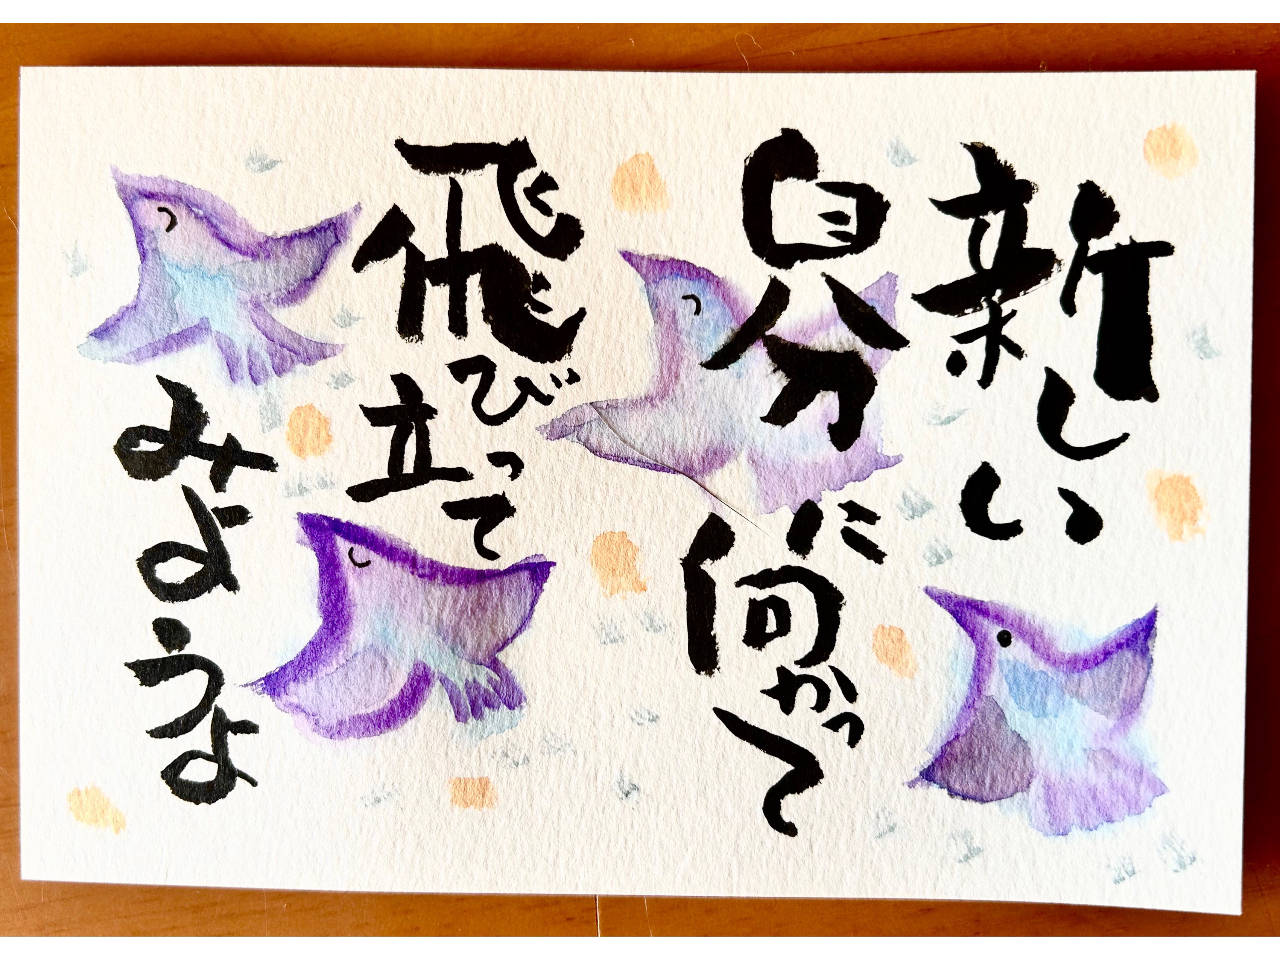 新しい
自分
に向かって
飛び
立って
みようよ